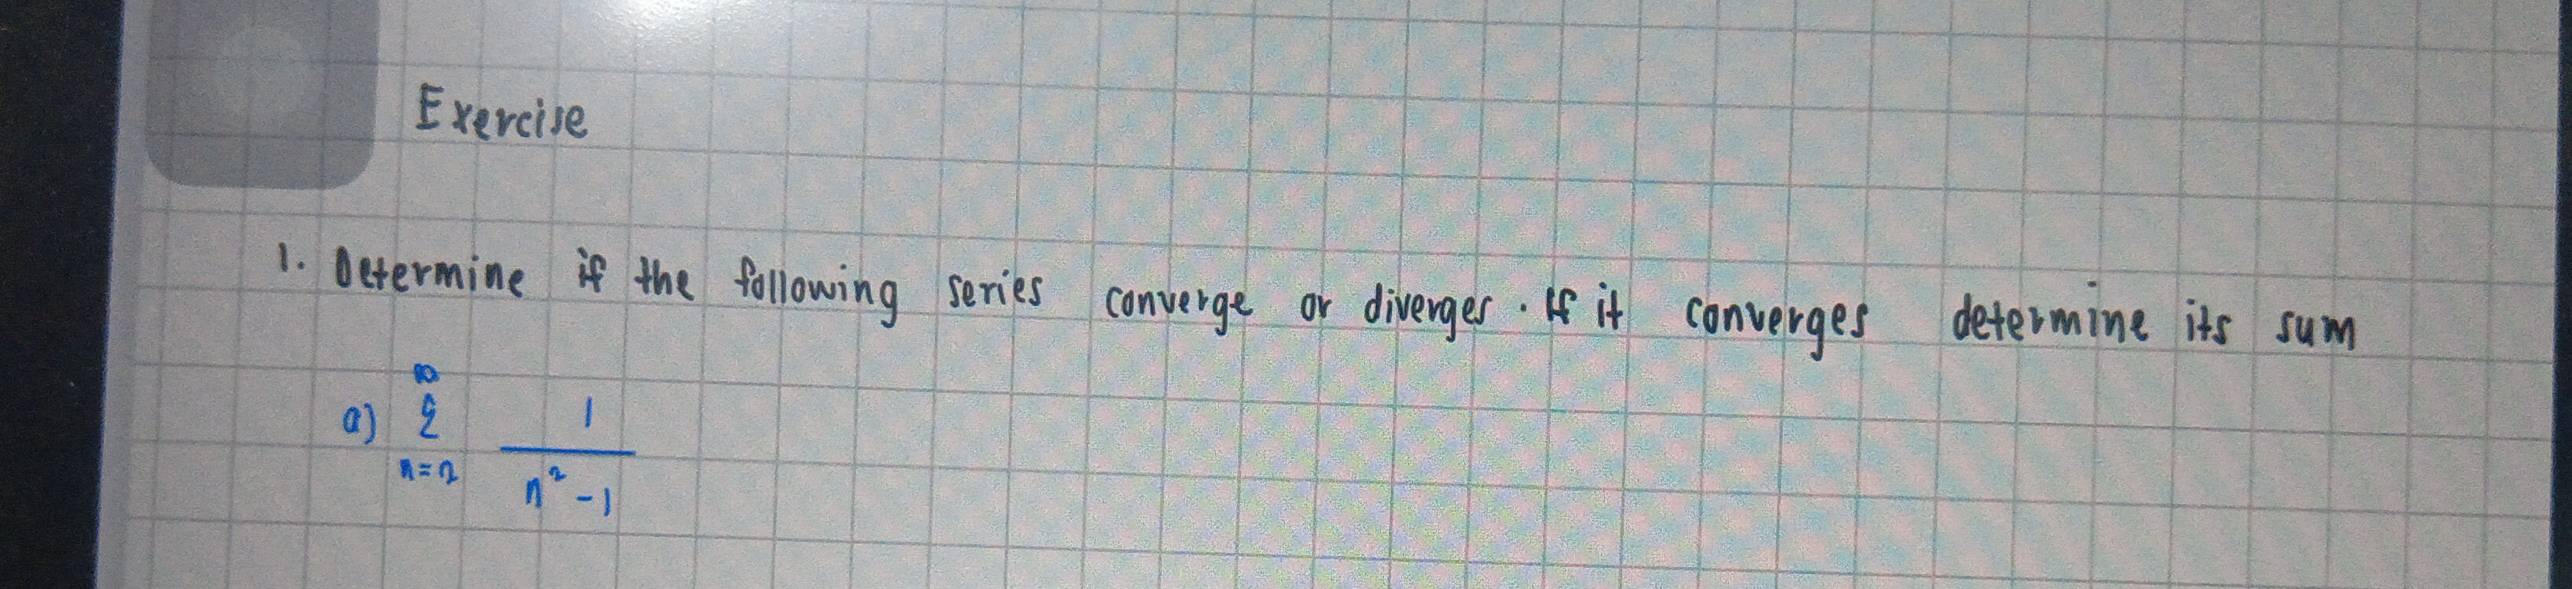 Exercise
1. Determine if the following series converge or diverges. If it converges determine its sum
a) ∞ Σ n=2 1/(n²-1)